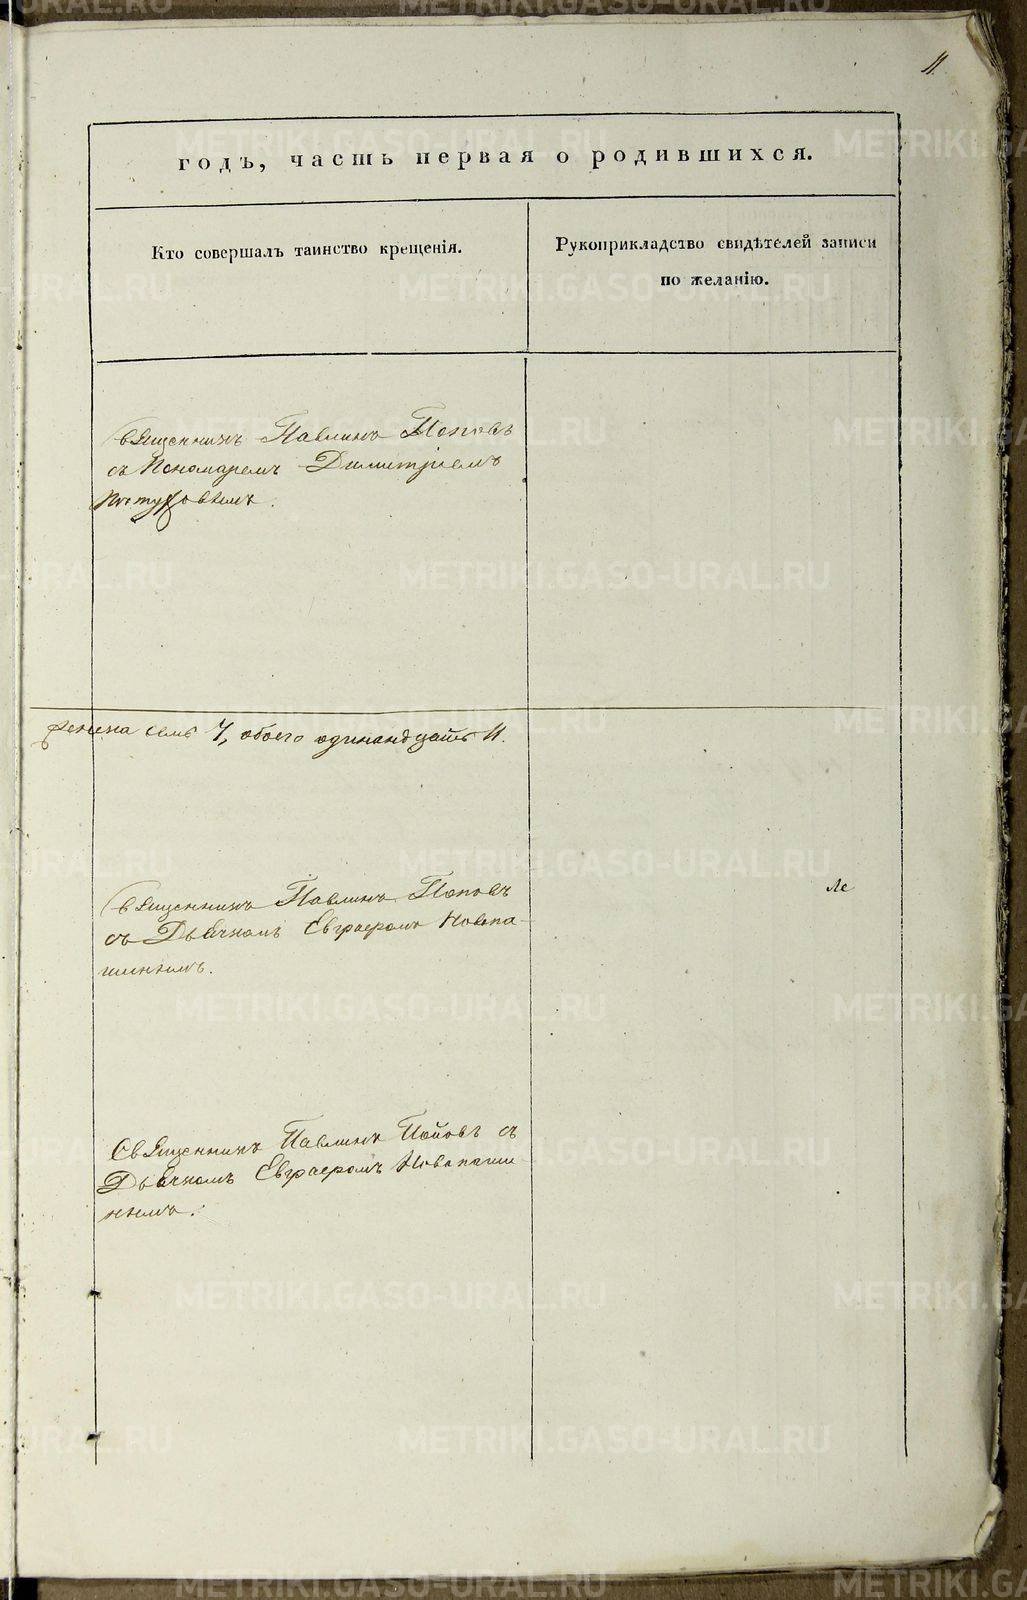 11.
годъ, часть первая о родившихся.
Кто совершалъ таинство крещенія.
Рукоприкладство свидѣтелей записи
по желанію.
Священникъ Павлинъ Поповъ
съ Пономаремъ Димитріемъ
семь 7, обоего одинандцать 11.
Священникъ Павлинъ Поповъ
съ Дьячкомъ Евграфомъ Новопа-
шинымъ.
Ле
Священникъ Павлинъ Поповъ съ
Дьячкомъ Евграфомъ Новопаши
нымъ.
METRIKI.GASO-URAL.RU